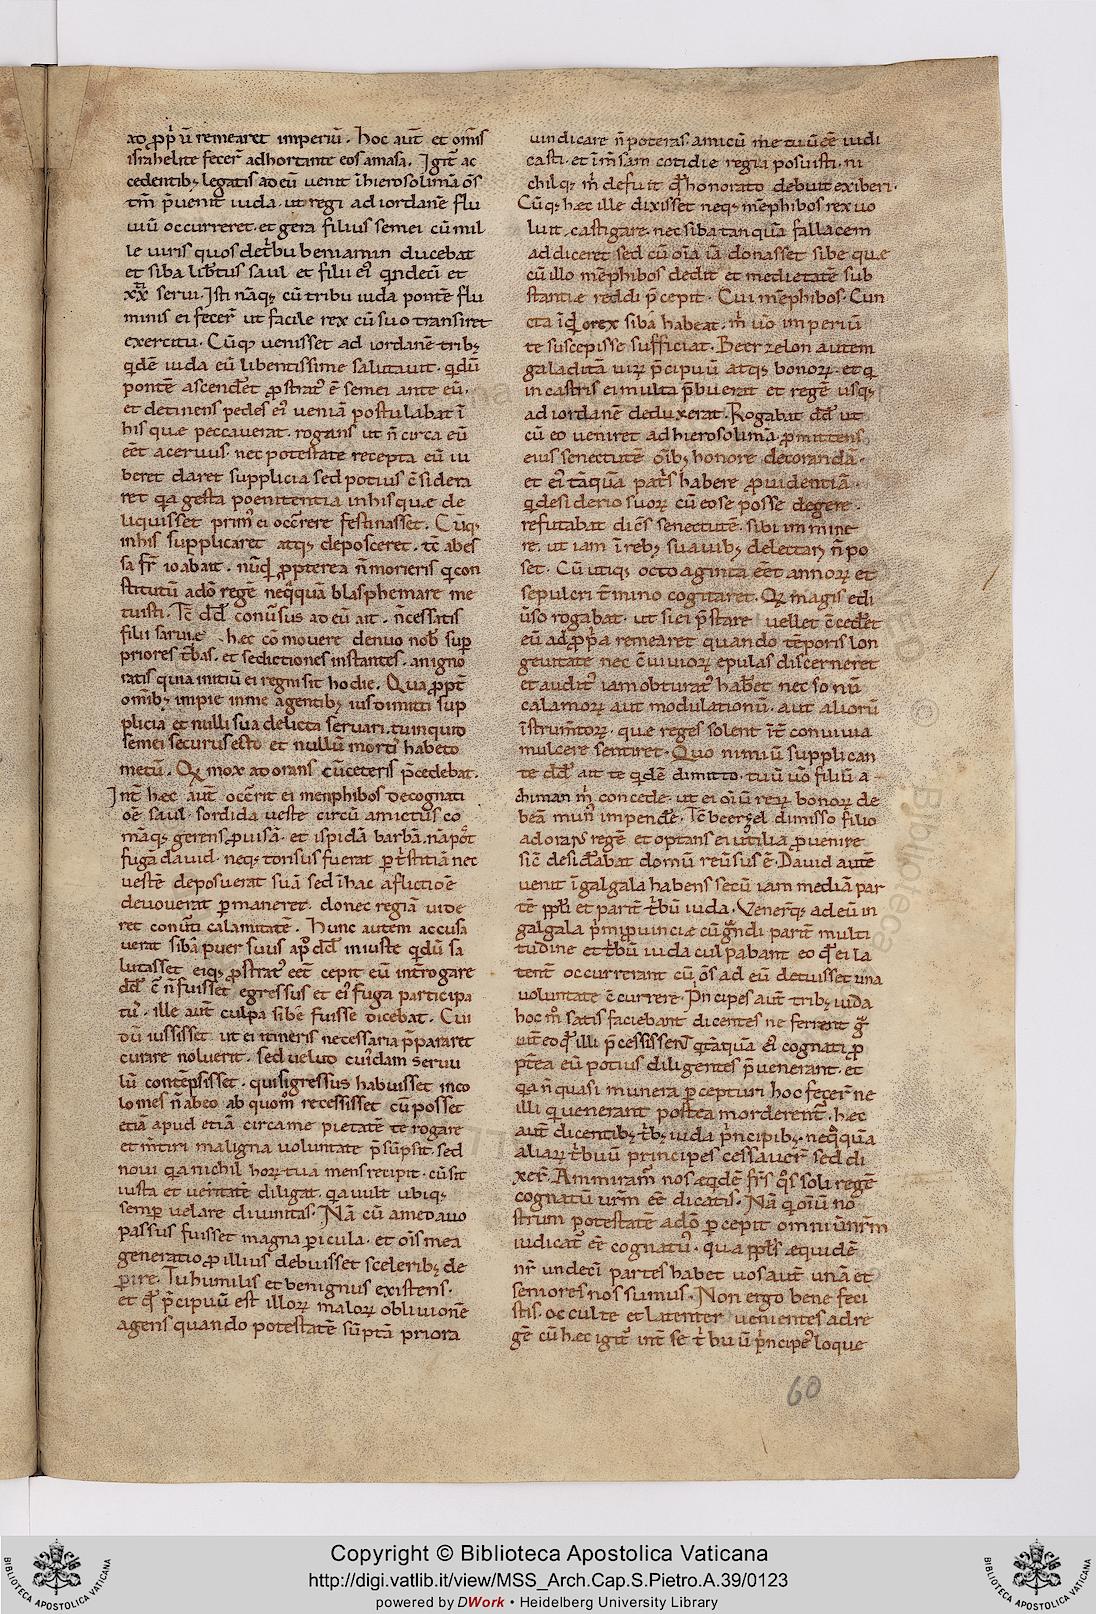 ad ꝓpͥū remearet imperiū. hoc aut̄ et om̄s
israhelite fecer̄ adhortante eos amasa. Igit̄ ac
cedentib; legatis ad eū uenit ī hierosolimā om̄s
tm̄ p̄uenit iuda. ut regi ad iordanē flu
uiū occurreret. et gera filius semei cū mil
le uiris quos de tͥbu beniamin ducebat
et siba lib̄tus saul et filii eiꝰ qͥndecī et
xx serui. Isti nāq; cū tribu iuda pontē flu
minis ei fecer̄ ut facile rex cū suo transiret
exercitu. Cūq; uenisset ad iordanē trib;
qͥdē iuda eū libentissime salutauit. qͥdū
pontē ascendēt ꝓstratꝰ ē semei ante eū.
et detinens pedes eiꝰ ueniā postulabat ī
his quæ peccauerat. rogans ut n̄ circa eū
eēt aceruus. nec potestate recepta eū iu
beret daret supplicia sed potius c̄sidera
ret qͥa gesta poenitentia in his quæ de
liquisset primꝰ ei occr̄rere festinasset. Cūq;
in his supplicaret atq; deposceret. tc̄ abes
sa fr̄ ioab ait. nūqͥd ꝓpterea n̄ morieris qͥ con
stitutū a dō regē neqͣquā blasphemare me
tuisti. Tc̄ dd̄ conūsus ad eū ait. n̄ cessatis
filii saruiæ hæc cōmouere denuo nob̄ suꝑ
priores tr̄bas. et seditiones instantes. an igno
ratis quia initiū ei regni sit hodie. Qua ꝓpt̄
omīb; impie in me agentib; ius dimitti sup
plicia et nulli sua delicta seruari. tu inquid
semei securus esto et nullū mortꝰ habeto
metū. Qͥ mox adorans cū ceteris p̄cedebat.
Int̄ hæc aut̄ occr̄it ei menphibos de cognati
oē saul. sordida ueste circū amictus co
māq; gerens ꝓuisā. et ispidā barbā. nā pͦt
fugā dauid. neq; tonsus fuerat p̄ tr̄stitiā nec
uestē deposuerat suā sed ī hac aflictiōe
deuouerat ꝑmaneret. donec regiā uide
ret conūti calamitatē. Hunc autem accusa
uerat siba puer suus apͩ dd̄ iniuste qͥdū sa
lutasset eiq; ꝓstratꝰ eēt cepit eū int̄rogare
dd̄ c̄ n̄ fuisset egressus et eiꝰ fuga participa
tꝰ. ille aut̄ culpā sibe fuisse dicebat. Cui
dū iussisset ut ei itineris necessaria p̄pararet
curare noluerit. sed uelud cuīdam seruu
lū contēpsisset. qui si gressus habuisset inco
lomes n̄ abeo ab quom̄ recessisset cū posset
etiā apud etiā circa me pietatē te rogare
et m̄tiri maligna uoluntate p̄sūpsit. sed
noui qͥa nichil horꝝ tua mens recipit. cū sit
iusta et ueritatē diligat. qͥa uult ubiq;
semꝑ uelare diuinitas. Nā cū a me d auo
passus fuisset magna ꝑicula. et oīs mea
generatio ꝓ illius debuisset scelerib; de
ꝑire. Tu humilis et benignus existens.
et qͩ p̄cipuū est illorꝝ malorꝝ obliuionē
agens quando potestatē sūptā priora
uindicare n̄ poteras. amicū me tuū eē iudi
casti. et ī mēsam cotidie regia posuisti. ni
chilq; m̄ defuit qͩ honorato debuit exiberi.
Cūq; hæc ille dixisset neq; mēphibos rex uo
luit castigare. nec siba tanquā fallacem
addiceret sed cū oīa iā donasset sibe quæ
cū illo mēphibos dedit et medietatē sub
stantiæ reddi p̄cepit. Cui mēphibos. Cun
cta īqͥd o rex siba habeat. m̄ u̇o imperiū
te suscepisse sufficiat. Beerzelon autem
galaditā uirꝝ p̄cipuū atq; bonorꝝ. et qͥ
in castris ei multa p̄buerat et regē usq;
ad iordanē deduxerat. Rogabat dd̄ ut
cū eo ueniret ad hierosolimā ꝓmittens
eius senectutē oīb; honore decorandā.
et eiꝰ tāquā patͥs habere ꝓuidentiā.
qͥ desiderio suorꝝ cū eo se posse degere
refutabat dicēs senectutē. sibi immine
re. ut iam ī reb; suauib; delectarꝰ n̄ po
set. Cū utiq; octoaginta eēt annorꝝ et
sepulcri t̄mino cogitaret. Qͥ magis e di
u̇so rogabat. ut si ei p̄stare uellet c̄cedēt
eū ad ꝓpͥa remearet quando tēporis lon
geuitate nec c̄uiuiorꝝ epulas discerneret
et auditꝰ iam obturatꝰ hab̄et nec sonū
calamorꝝ aut modulationū. aut aliorū
īstrum̄torꝝ. quæ reges solent īt̄ conuiuia
mulcere sentiret. Quo nimiū supplican
te dd̄ ait te qͥdē dimitto. tuū u̇o filiū a
chiman m̄ concede. ut ei oīū rerꝝ bonorꝝ de
beā munꝰ impendē. Tc̄ beerzel dimisso filio
adorās regē et optans ei utilia ꝓuenire
sic̄ desid̄abat domū reūsus ē. Dauid autē
uenit ī galgala habens secū iam mediā par
tē ppl̄i et partē tͥbū iuda. Venerq; ad eū in
galgala pͥmi ꝓuinciæ cū gͣndi partē multi
tudine et tͥbū iuda culpabant eo qͩ ei la
tent̄ occurrerant cū oēs ad eū debuisset una
uoluntate c̄currere. Pͥncipes aut̄ trib; iuda
hoc m̄ satis faciebant dicentes ne ferrent gͣ
uit̄ eo qͩ illi p̄cessissent qͣtāquā eiꝰ cognati ꝓ
pt̄ea eū potius diligentes p̄uenerant. et
qͥa n̄ quasi munera ꝑcepturi hoc fecer̄ ne
illi qͥ uenerant postea morderent̄. hæc
aut̄ dicentib; tͥb; iuda pͥncipib;. neqͣquā
aliarꝝ tͥbuū principes cessauer̄ sed di
xer̄. Ammiram̄ nos æqͥdē fr̄s qͥos soli regē
cognatū ur̄m eē dicatis. Nā qͥ oīū no
strum potestatē a dō ꝑcepit omniū nr̄m
iudicatꝰ eē cognatꝰ. qua ppl̄s æquidē
nr̄ undeci partes habet uos aut̄ unā et
seniores nos sumus. Non ergo bene feci
stis. occulte et latenter uenientes ad re
gē cū hæc igitꝰ int̄ se tͥbuū pͥncipes loque
60
Copyright © Biblioteca Apostolica Vaticana
http://digi.vatlib.it/view/MSS_Arch.Cap.S.Pietro.A.39/0123
powered by DWork • Heidelberg University Library